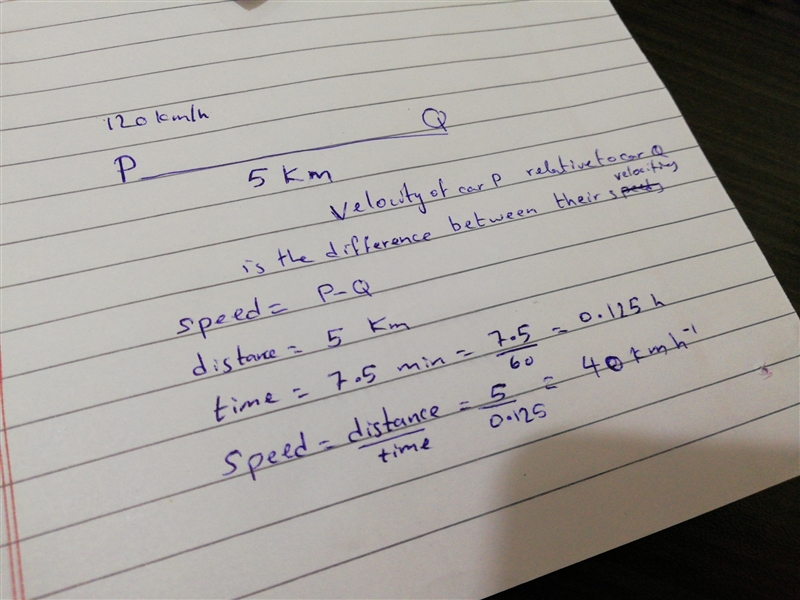 120 km/h
P Q
5 Km
Velocity of car P relative to car Q
is the difference between their velocities
speed = P-Q
distance = 5 Km
time = 7.5 min = 7.5/60 = 0.125 h
Speed = distance/time = 5/0.125 = 40 km h⁻¹